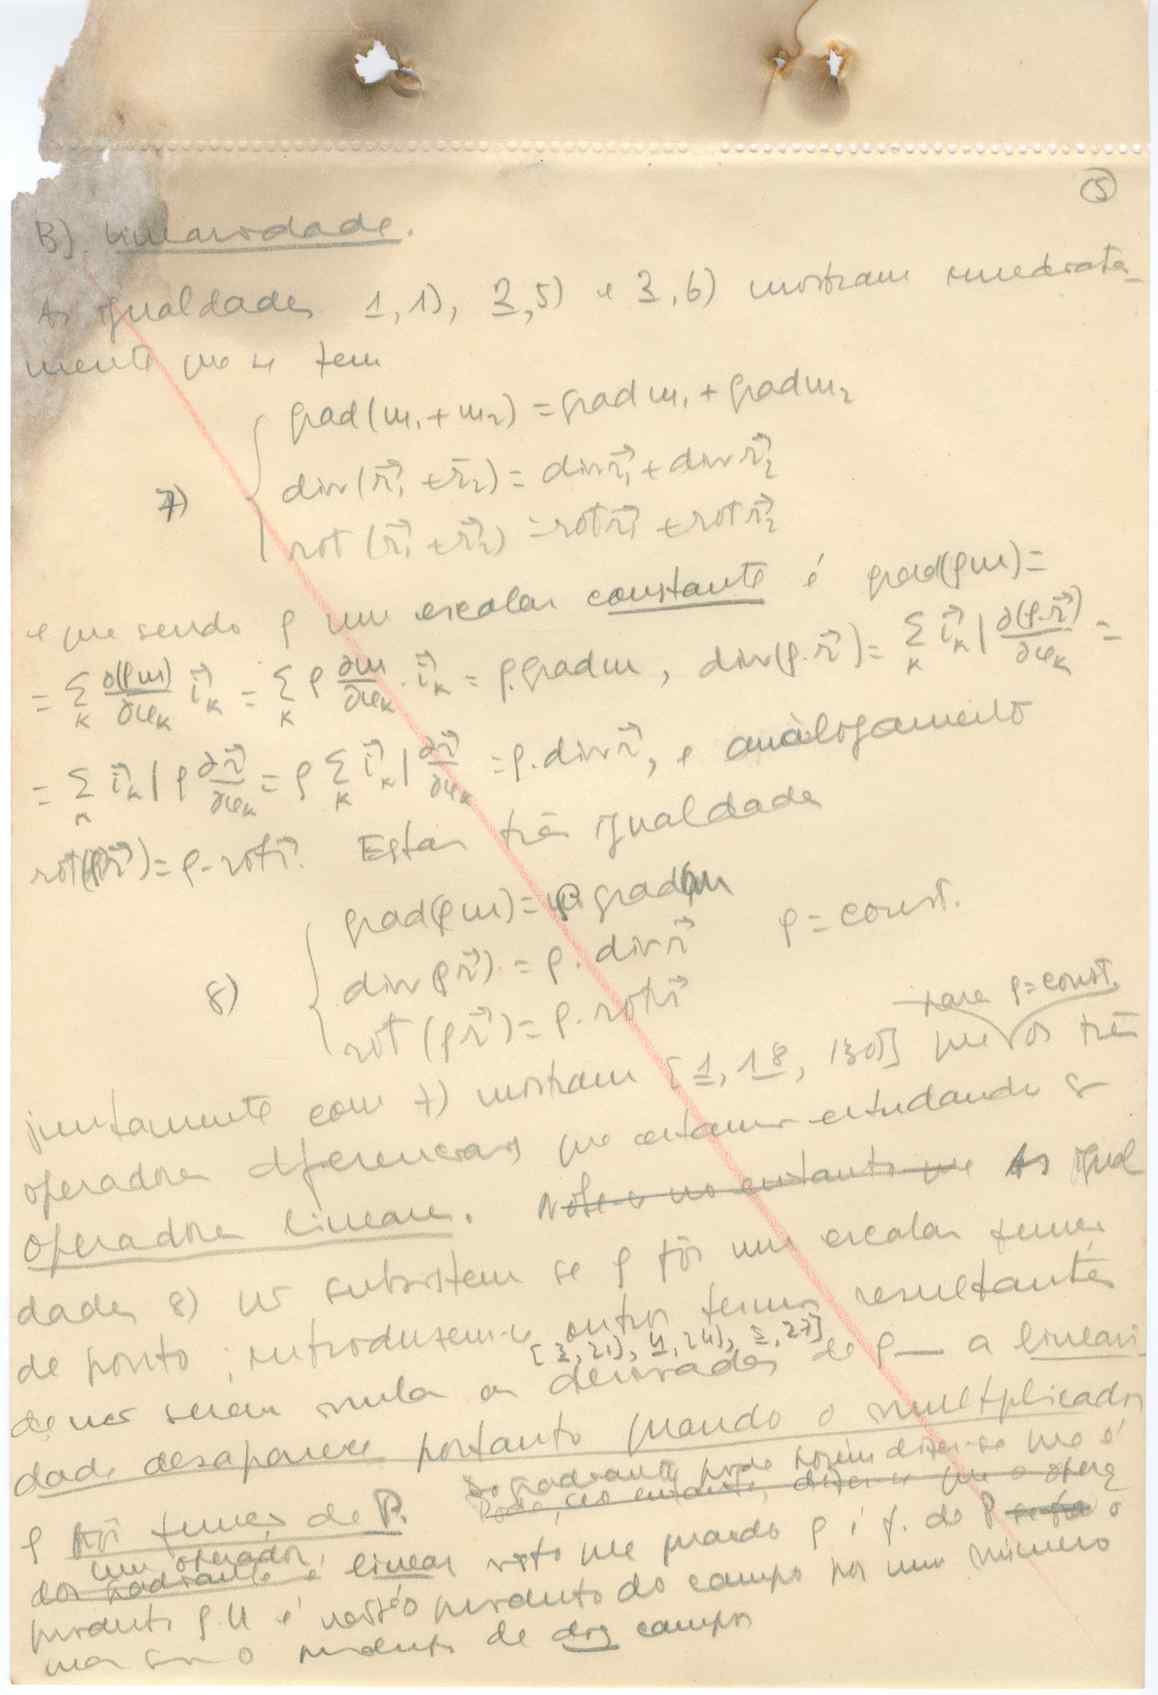 5
B). Linearidade.
As igualdades 1,1), 3,5) e 3,6) mostram imediata-
mente que se tem
grad(m₁+m₂) = grad m₁ + grad m₂
7) div(r⃗₁ + r⃗₂) = div r⃗₁ + div r⃗₂
rot(r⃗₁ + r⃗₂) = rot r⃗₁ + rot r⃗₂
e que sendo ρ um escalar constante é grad(ρm) =
= Σ_k ∂(ρm)/∂u_k i⃗_k = Σ_k ρ ∂m/∂u_k · i⃗_k = ρ.grad m, div(ρ.r⃗) = Σ_k i⃗_k | ∂(ρ.r⃗)/∂u_k =
= Σ_k i⃗_k | ρ ∂r⃗/∂u_k = ρ Σ_k i⃗_k | ∂r⃗/∂u_k = ρ.div r⃗, e anàlogamente
rot(ρr⃗) = ρ.rot r⃗. Estas três igualdades
grad(ρm) = ρ.grad m
8) div(ρr⃗) = ρ.div r⃗ ρ = const.
rot(ρr⃗) = ρ.rot r⃗
para ρ = const.
juntamente com 7) mostram [1, 18, 130] que os três
operadores diferenciais que estamos estudando são
operadores lineares. Note-se no entanto que As igual
dades 8) não subsistem se ρ fôr um escalar função
de ponto; introduzem-se outros termos resultantes
[3,21), 4,24), 5,27]
de não serem nulas as derivadas de ρ — a lineari
dade desaparece portanto quando o multiplicador
ρ fôr função de P. Do gradiente pode porém dizer-se que é
Pode, no entanto, dizer-se que o opera
um operador
dor gradiente é linear visto que quando ρ é f. de P o
produto ρ.u é não só produto do campo por um número
mas sim o produto de dois campos